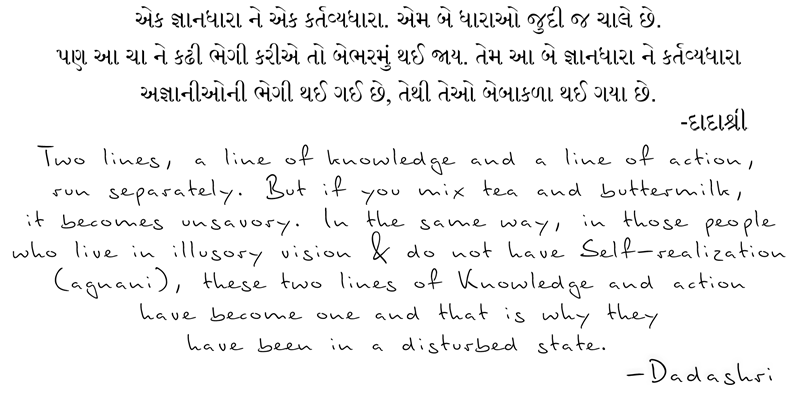 એક જ્ઞાનધારા ને એક કર્તવ્યધારા. એમ બે ધારાઓ જુદી જ ચાલે છે.
પણ આ ચા ને કઢી ભેગી કરીએ તો બેભરમું થઈ જાય. તેમ આ બે જ્ઞાનધારા ને કર્તવ્યધારા
અજ્ઞાનીઓની ભેગી થઈ ગઈ છે, તેથી તેઓ બેબાકળા થઈ ગયા છે.
-દાદાશ્રી
Two lines, a line of knowledge and a line of action,
run separately. But if you mix tea and buttermilk,
it becomes unsavory. In the same way, in those people
who live in illusory vision & do not have Self-realization
(agnani), these two lines of Knowledge and action
have become one and that is why they
have been in a disturbed state.
-Dadashri